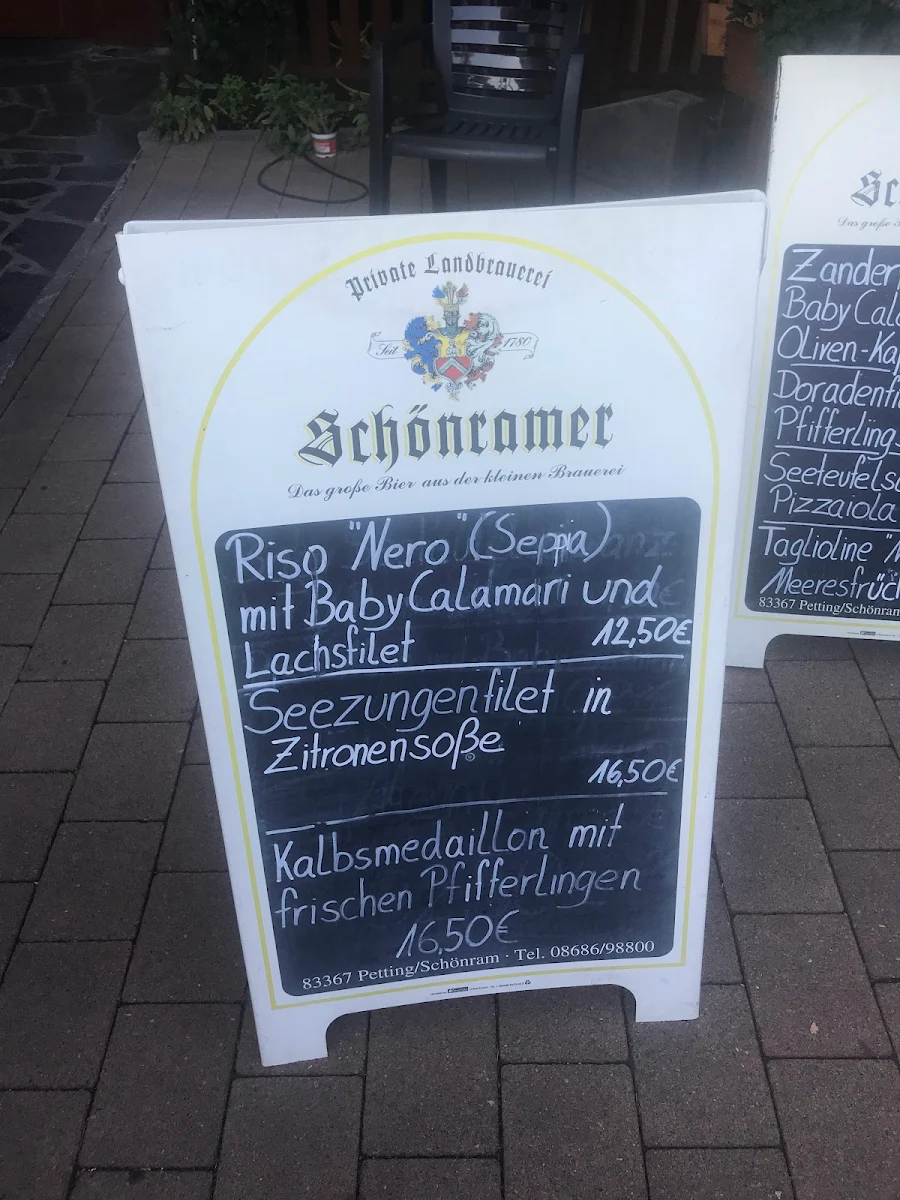 Private Landbrauerei
Seit 1780
Schönramer
Das große Bier aus der kleinen Brauerei
Riso "Nero" (Seppia)
mit Baby Calamari und
Lachsfilet 12,50€
Seezungenfilet in
Zitronensoße
16,50€
Kalbsmedaillon mit
frischen Pfifferlingen
16,50€
83367 Petting/Schönram · Tel. 08686/98800
Das große
Zander
Baby Cala
Oliven-Kap
Doradenfi
Pfifferling
Seeteufels
Pizzaiola
Taglioline "N
Meeresfrüc
83367 Petting/Schönram